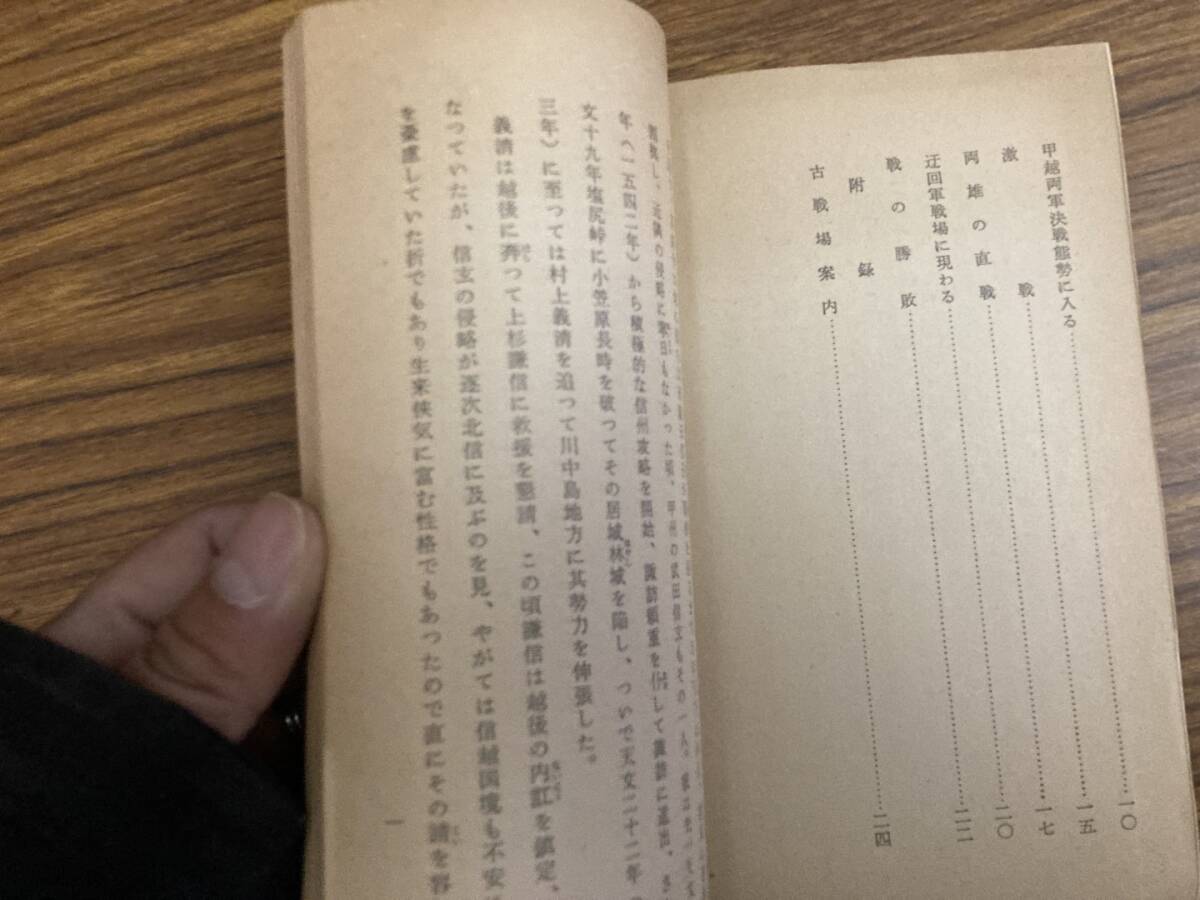 甲越両軍決戦態勢に入る……一〇
激戦……一五
両雄の直戦……一七
迂回軍戦場に現わる……二〇
戦の勝敗……二二
附録
古戦場案内……二四
し、近隣の侵略に寧日もなかった頃、甲州の武田信玄もその一人。
年(一五四二年)から積極的な信州攻略を開始、諏訪頼重を仆して諏訪に進出、
文十九年塩尻峠に小笠原長時を破つてその居城林城を陥し、ついで天文二十二年
三年)に至つては村上義清を追つて川中島地方に其勢力を伸張した。
義清は越後に奔つて上杉謙信に救援を懇請、この頃謙信は越後の内訌を鎮定、
なつていたが、信玄の侵略が逐次北信に及ぶのを見、やがては信越国境も不安
を憂慮していた折でもあり生来侠気に富む性格でもあつたので直にその請を容
一